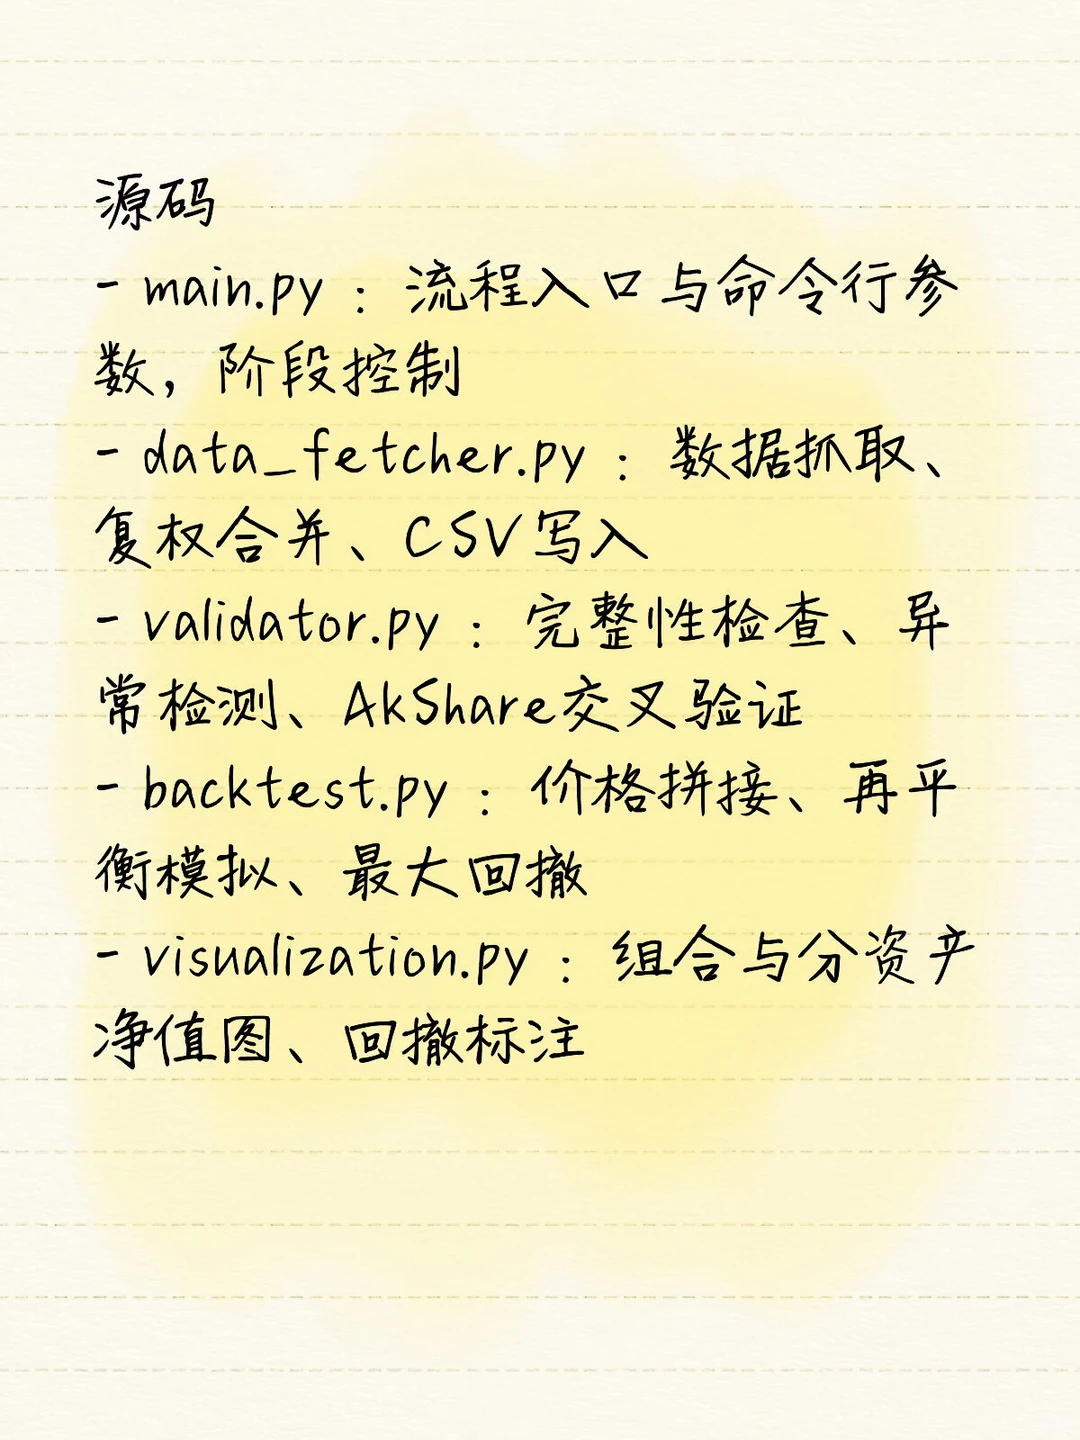 源码
- main.py ：流程入口与命令行参
数，阶段控制
- data_fetcher.py ：数据抓取、
复权合并、CSV写入
- validator.py ：完整性检查、异
常检测、AkShare交叉验证
- backtest.py ：价格拼接、再平
衡模拟、最大回撤
- visualization.py ：组合与分资产
净值图、回撤标注